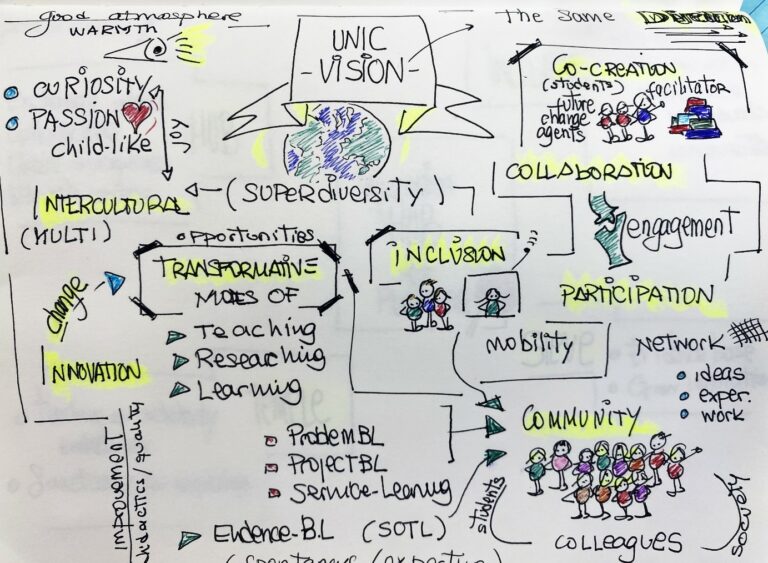 good atmosphere
WARMTH
CURIOSITY
PASSION
child-like
JOY
INTERCULTURAL
(MULTI)
UNIC
-VISION-
(SUPERdiVERSITY)
The Same
CO-CREATION
(students)
future
change
agents
facilitator
COLLABORATION
engagement
PARTICIPATION
opportunities
TRANSFORMATIVE
MODES OF
Teaching
Reseaching
Learning
ProblemBL
ProjectBL
Service-Learning
Evidence-B.L (SOTL)
change
INNOVATION
IMPROVEMENT
didactics/quality
INCLUSION
mobility
NETWORK
ideas
exper.
work
COMMUNITY
students
COLLEAGUES
society